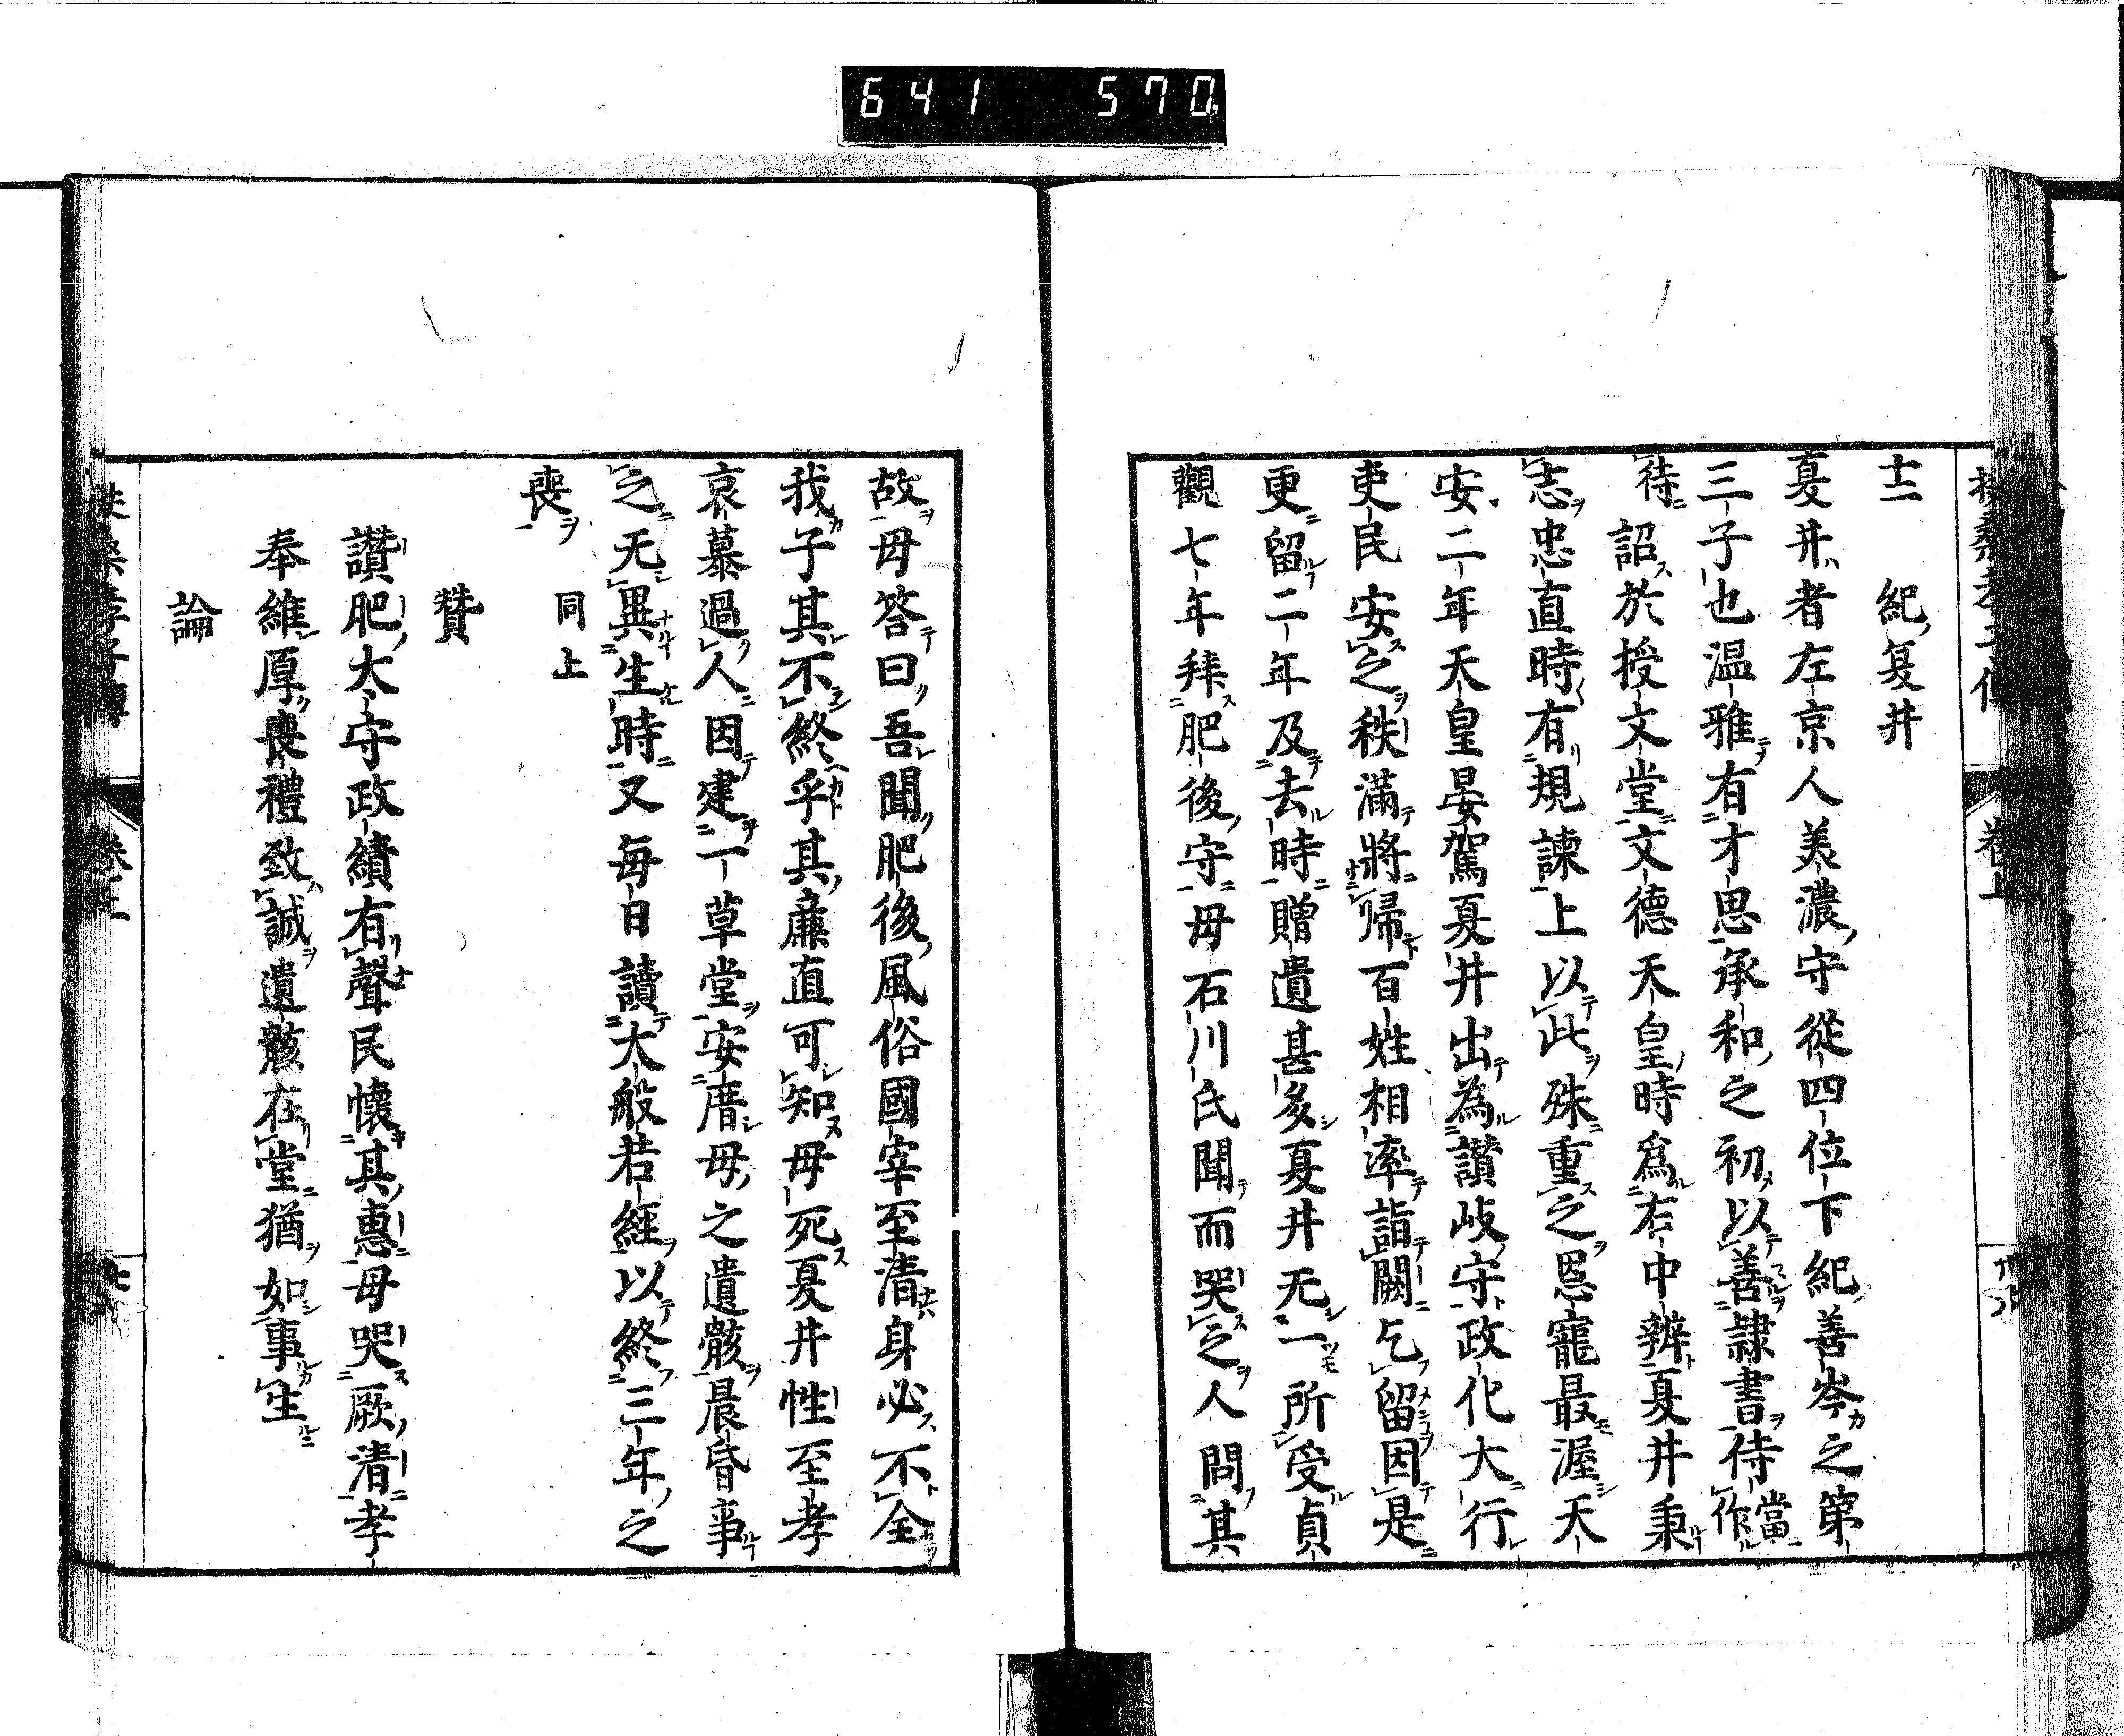 641 570
十二 紀夏井
夏井者左京人美濃守從四位下紀善岑之第
三子也温雅有才思承和之初以善隷書侍當作
待詔於授文堂文德天皇時爲右中辨夏井秉
志忠直時有規諫上以此殊重之恩寵最渥天
安二年天皇晏駕夏井出為讃岐守政化大行
吏民安之秩滿將帰百姓相率詣闕乞留因是
更留二年及去時贈遺甚多夏井无一所受貞
觀七年拜肥後守母石川氏聞而哭之人問其
故母答曰吾聞肥後風俗國宰至清身必不全
我子其不終乎其廉直可知母死夏井性至孝
哀慕過人因建一草堂安厝母之遺骸晨昏事
之无異生時又每日讀大般若經以終三年之
喪 同上
贊
讃肥大守政績有聲民懷其惠母哭厥清孝
奉維厚喪禮致誠遺骸在堂猶如事生
論